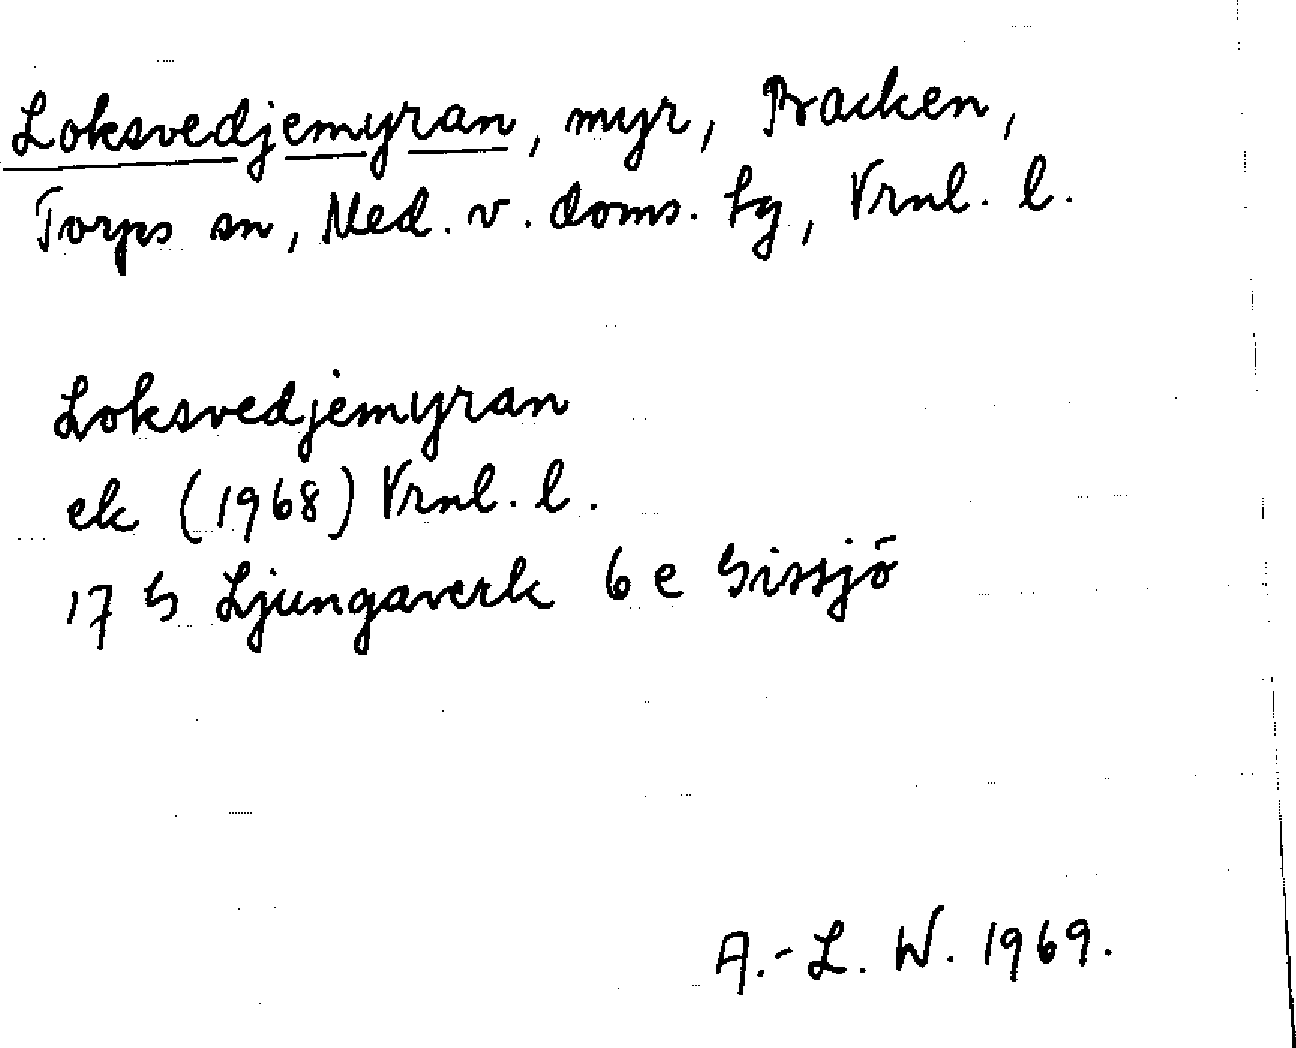 Loksvedjemyran, myr, Bracken,
Torps sn, Med. v. doms. tg, Vrnl. l.
Loksvedjemyran
ek (1968) Vrnl. l.
17 G Ljungaverk 6 e Gissjö
A.-L. W. 1969.